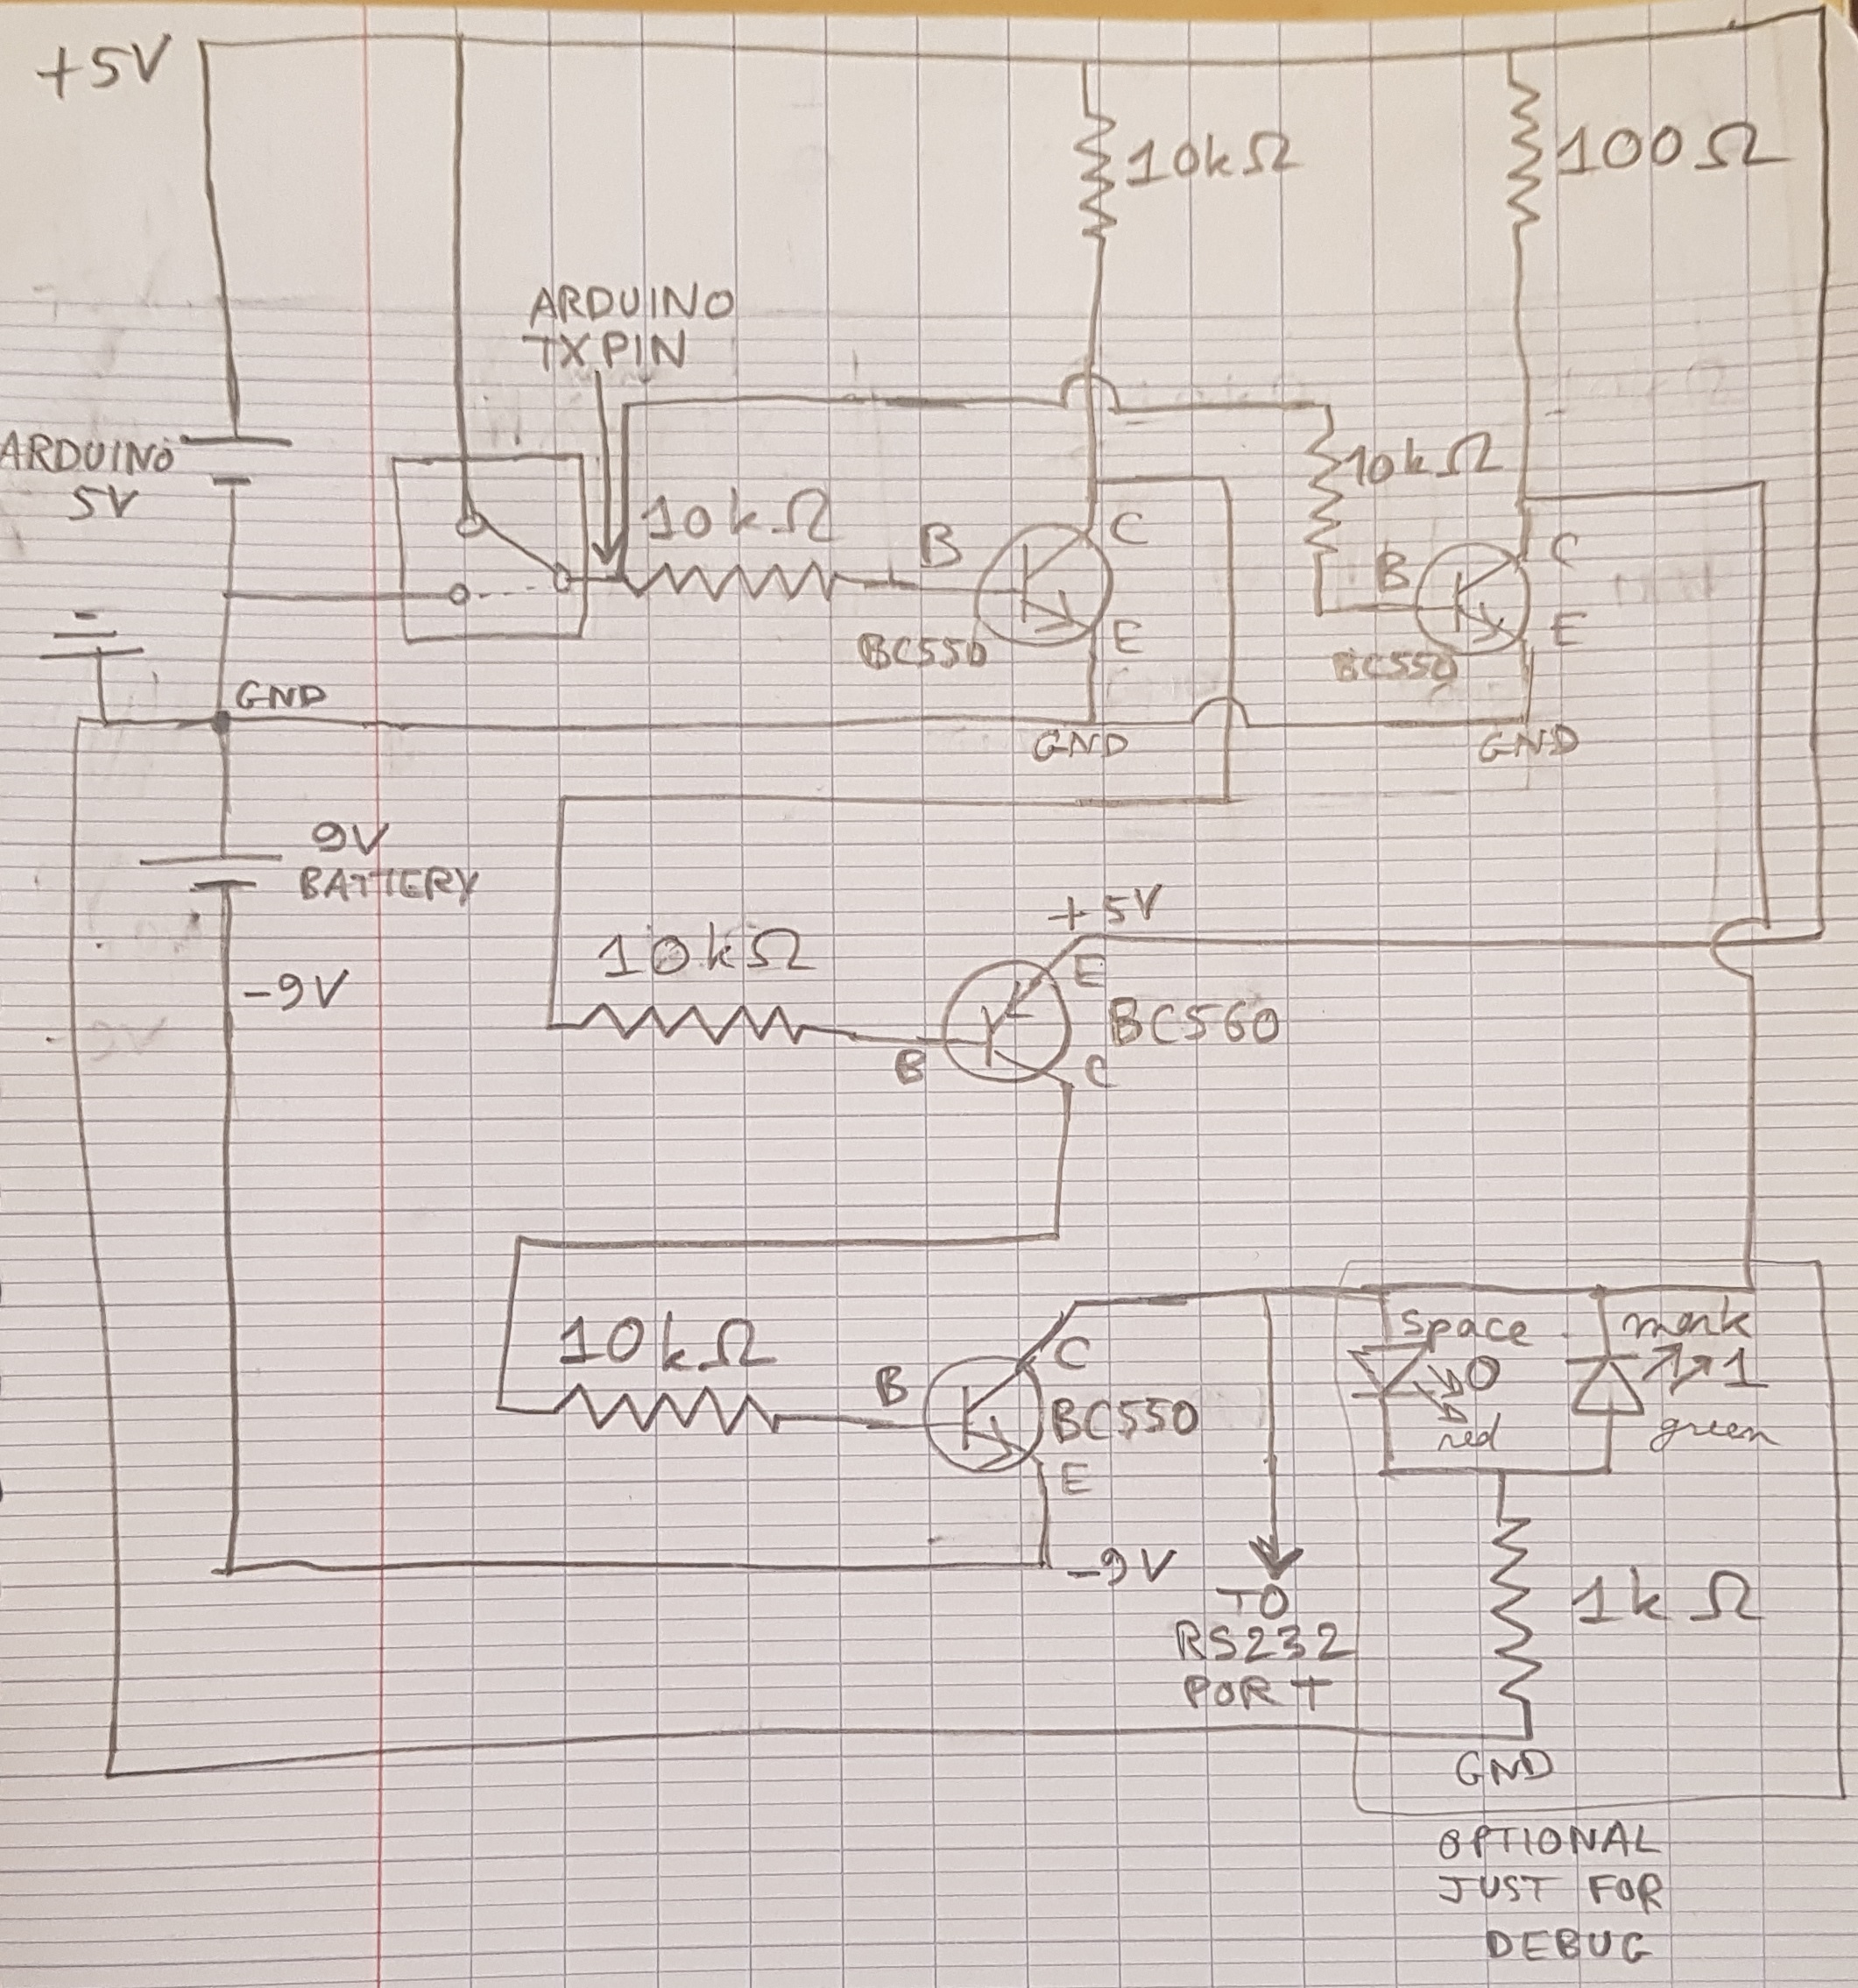 +5V
10kΩ
100Ω
ARDUINO
TX PIN
ARDUINO
5V
10kΩ
10kΩ
B
C
E
BC550
B
C
E
BC550
GND
GND
GND
9V
BATTERY
-9V
+5V
10kΩ
E
BC560
B
C
10kΩ
B
C
BC550
E
-9V
space
0
red
mark
1
green
TO
RS232
PORT
1kΩ
GND
OPTIONAL
JUST FOR
DEBUG